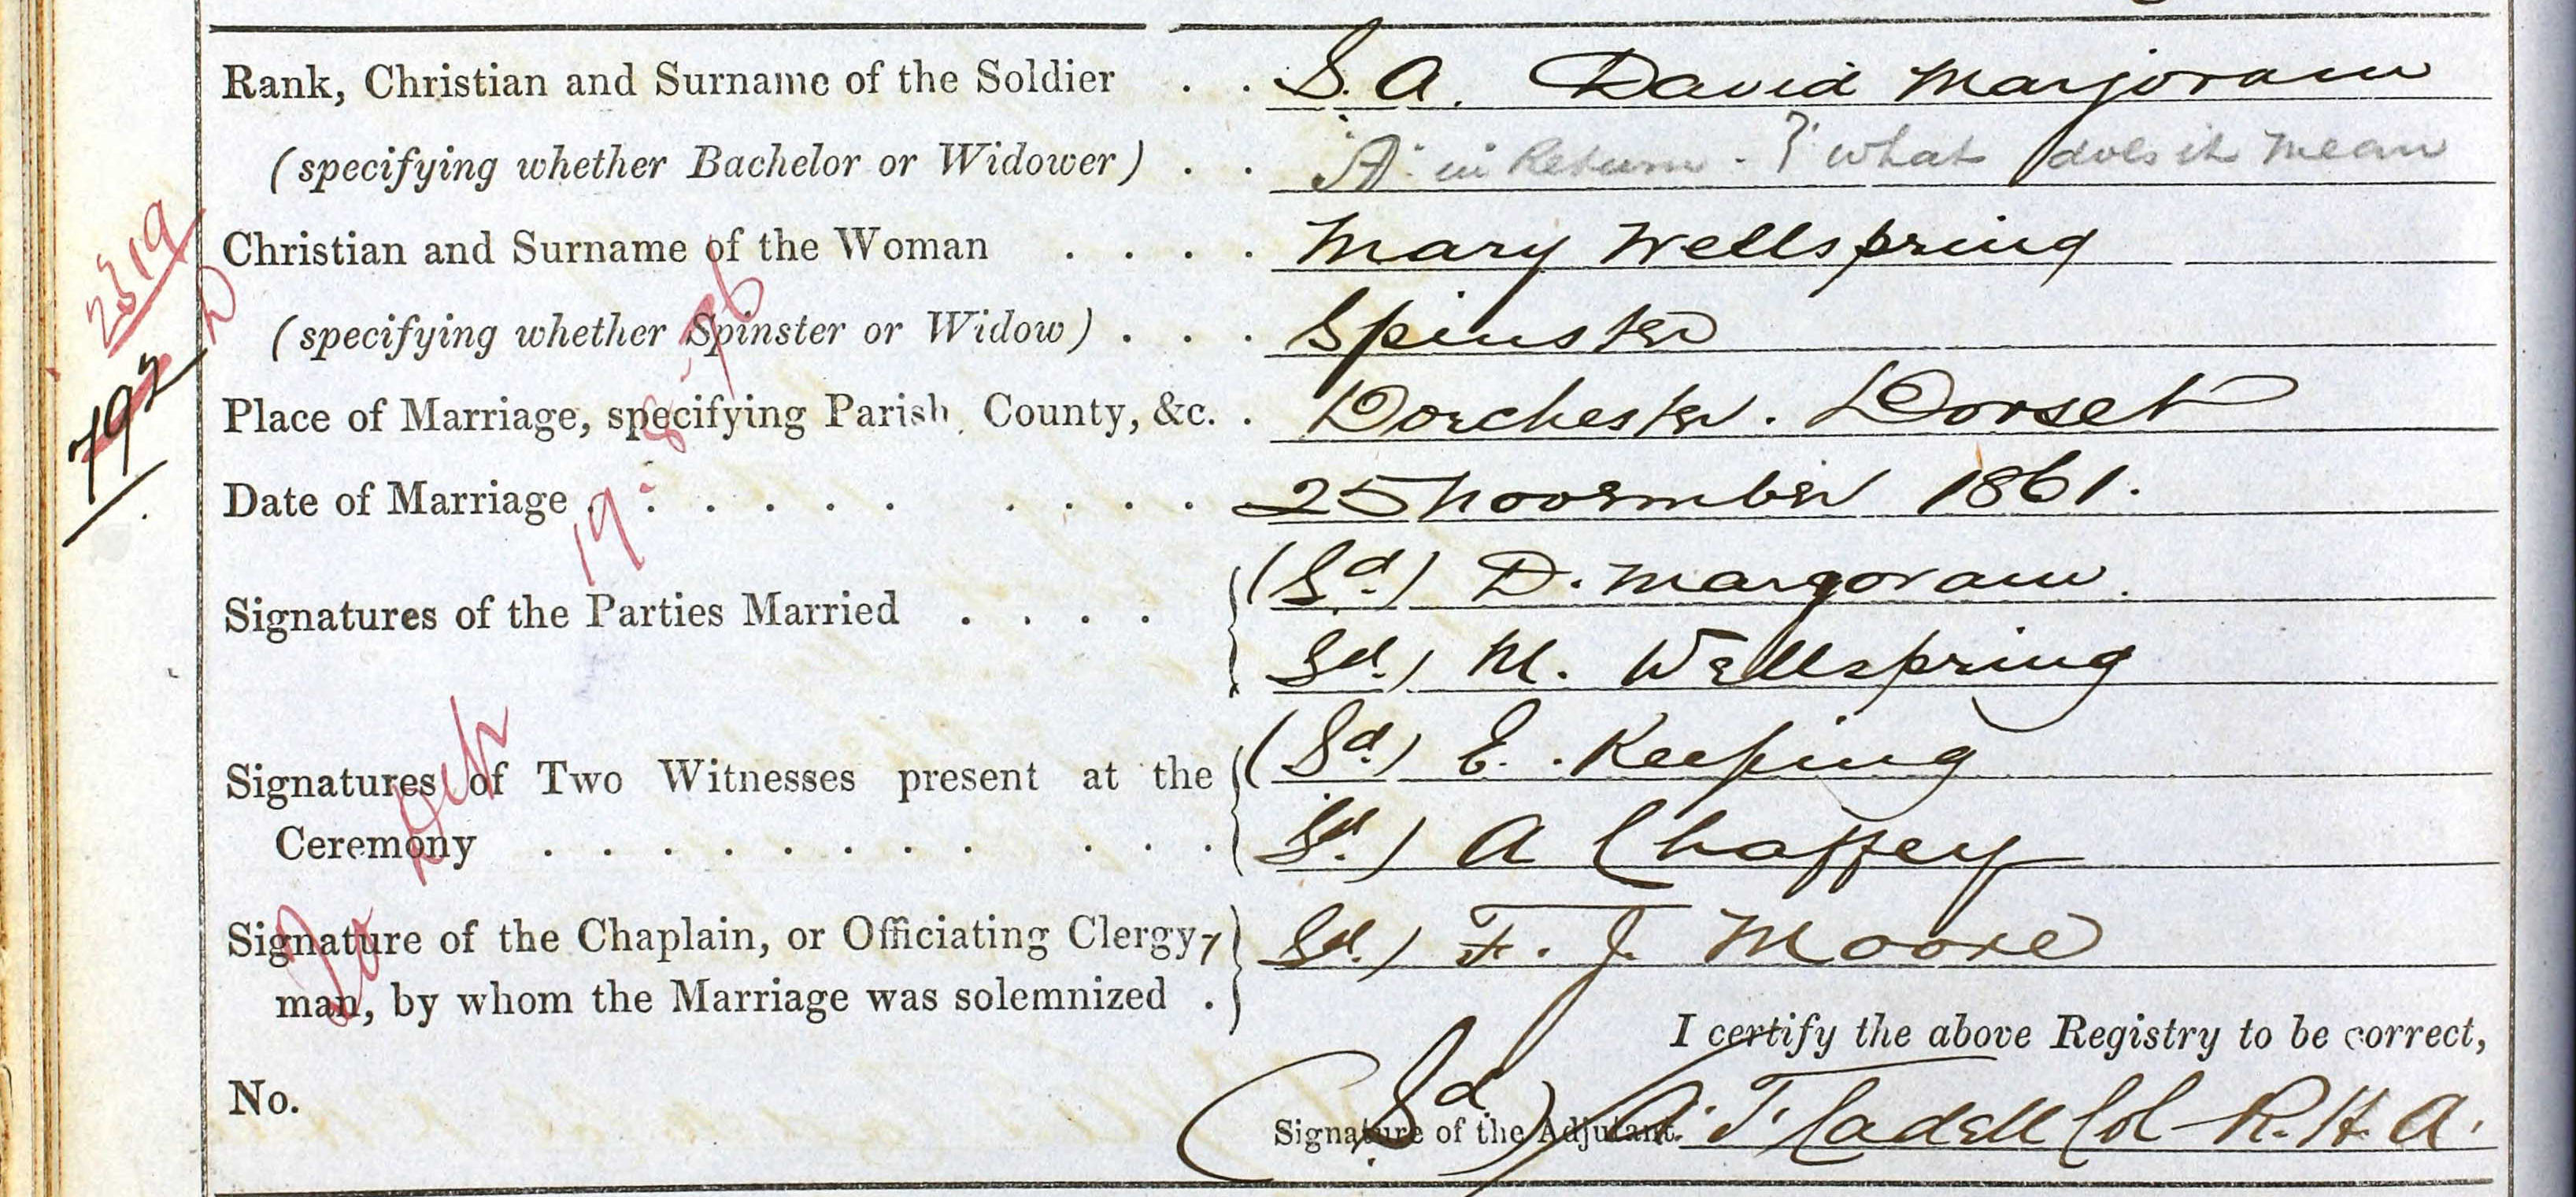 Rank, Christian and Surname of the Soldier . . S. A. David Marjoram
(specifying whether Bachelor or Widower) . . "A" in Return. ? what does it mean
2319
Christian and Surname of the Woman . . . . Mary Wellspring
(specifying whether Spinster or Widow) . . . Spinster
792
Place of Marriage, specifying Parish, County, &c. . Dorchester. Dorset
Date of Marriage . . . . . . . . . . 25 November 1861.
19
Signatures of the Parties Married . . . . (Sd.) D. Margoram.
Sd.) M. Wellspring
Signatures of Two Witnesses present at the (Sd.) E. Keeping
Ceremony . . . . . . . . . . . Sd.) A Chaffey
Signature of the Chaplain, or Officiating Clergy- Sd.) F. J. Moore
man, by whom the Marriage was solemnized .
I certify the above Registry to be correct,
No.
Signature of the Adjutant. (Sd) A. T. Cadell Col R.H.A.